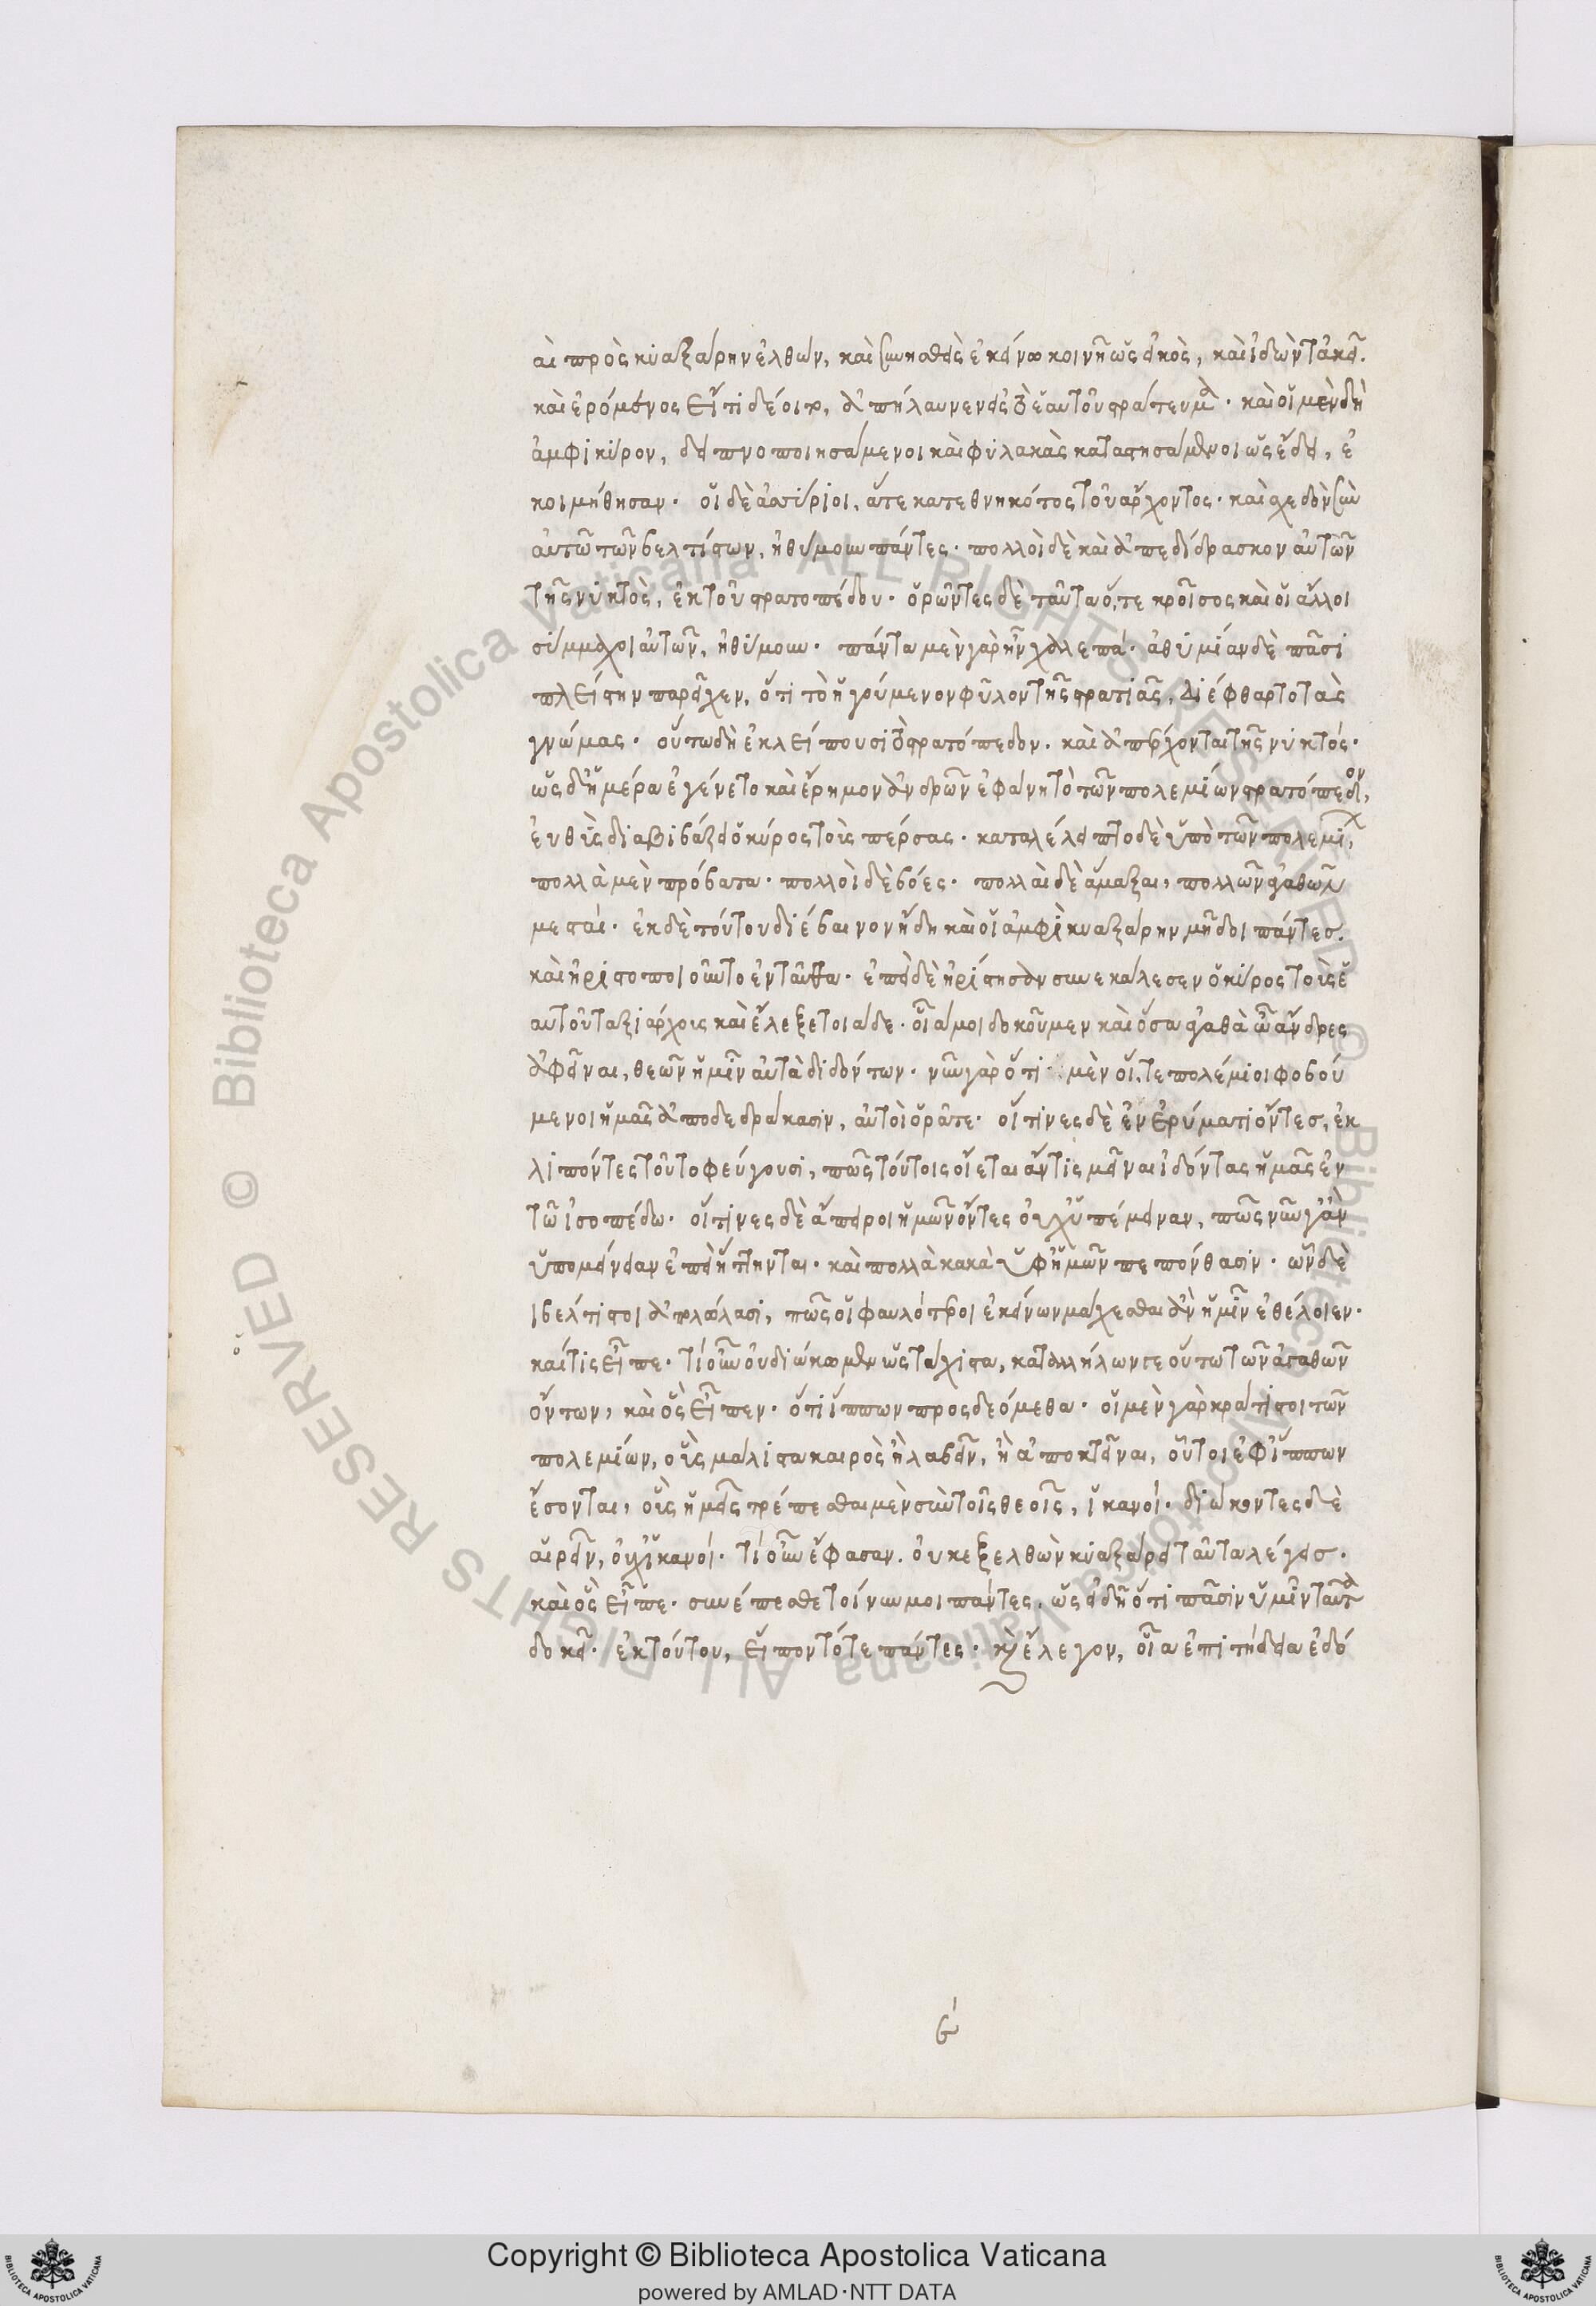 αι πρὸς κυαξάρην ἐλθὼν, καὶ συνησθεὶς ἐκείνω κοινῆ ὡς εἰκὸς, καὶ ἰδὼν τἀκεῖ.
καὶ ἐρόμενος εἴ τι δέοιτο, ἀπήλαυνεν εἰς τὸ ἑαυτοῦ στράτευμα. καὶ οἱ μὲν δὴ
ἀμφὶ κύρον, δειπνοποιησάμενοι καὶ φυλακὰς καταστησάμενοι ὡς ἔδει, ἐ
κοιμήθησαν. οἱ δὲ ἀσσύριοι, ἅτε κατεθνηκότος τοῦ ἄρχοντος. καὶ σχεδὸν σὺν
αὐτῶ τῶν βελτίστων, ἠθύμουν πάντες. πολλοὶ δὲ καὶ ἀπεδίδρασκον αὐτῶν
τῆς νυκτὸς, ἐκ τοῦ στρατοπέδου. ὁρῶντες δὲ ταῦτα ὅ,τε κροῖσος καὶ οἱ ἄλλοι
σύμμαχοι αὐτῶν, ἠθύμουν. πάντα μὲν γὰρ ἦν χαλεπά. ἀθυμίαν δὲ πᾶσι
πλείστην παρεῖχεν, ὅτι τὸ ἡγούμενον φῦλον τῆς στρατιᾶς, διέφθαρτο τὰς
γνώμας. οὕτω δὴ ἐκλείπουσι τὸ στρατόπεδον. καὶ ἀπέρχονται τῆς νυκτός.
ὡς δ' ἡμέρα ἐγένετο καὶ ἔρημον ἀνδρῶν ἐφάνη τὸ τῶν πολεμίων στρατόπεδον,
εὐθὺς διαβιβάζει ὁ κύρος τοὺς πέρσας. καταλέλειπτο δὲ ὑπὸ τῶν πολεμίων,
πολλὰ μὲν πρόβατα. πολλοὶ δὲ βόες. πολλαὶ δὲ ἅμαξαι, πολλῶν ἀγαθῶν
μεσταί. ἐκ δὲ τούτου διέβαινον ἤδη καὶ οἱ ἀμφὶ κυαξάρην μῆδοι πάντες.
καὶ ἠριστοποιοῦντο ἐνταῦθα. ἐπεὶ δὲ ἠρίστησαν συνεκάλεσεν ὁ κύρος τοὺς ἑ
αυτοῦ ταξιάρχους καὶ ἔλεξε τοιάδε. οἷά μοι δοκοῦμεν καὶ ὅσα ἀγαθὰ ὦ ἄνδρες
ἀφεῖναι, θεῶν ἡμῖν αὐτὰ διδόντων. νῦν γὰρ ὅτι μὲν οἵ,τε πολέμιοι φοβού
μενοι ἡμᾶς ἀποδεδράκασιν, αὐτοὶ ὁρᾶτε. οἵτινες δὲ ἐν ἐρύματι ὄντες, ἐκ
λιπόντες τοῦτο φεύγουσι, πῶς τούτοις οἴεται ἄν τις μεῖναι ἰδόντας ἡμᾶς ἐν
τῶ ἰσοπέδω. οἵτινες δὲ ἄπειροι ἡμῶν ὄντες οὐχ ὑπέμειναν, πῶς νῦν γ' ἂν
ὑπομείνειαν ἐπεὶ ἥττηνται. καὶ πολλὰ κακὰ ὑφ' ἡμῶν πεπόνθασιν. ὧν δὲ
ι βέλτιστοι ἀπολώλασι, πῶς οἱ φαυλότεροι ἐκείνων μάχεσθαι ἂν ἡμῖν ἐθέλοιεν.
καί τις εἶπε. τί οὖν οὐ διώκομεν ὡς τάχιστα, καταδήλων γε οὕτω τῶν ἀγαθῶν
ὄντων, καὶ ὃς εἶπεν. ὅτι ἵππων προσδεόμεθα. οἱ μὲν γὰρ κράτιστοι τῶν
πολεμίων, οὓς μάλιστα καιρὸς ἢ λαβεῖν, ἢ ἀποκτεῖναι, οὗτοι ἐφ' ἵππων
ἔσονται, οὓς ἡμεῖς τρέπεσθαι μὲν σὺν τοῖς θεοῖς, ἱκανοί. διώκοντες δὲ
αἱρεῖν, οὐχ ἱκανοί. τί οὖν ἔφασαν. οὐκ ἐξελθὼν κυαξάρει ταῦτα λέγεις.
καὶ ὃς εἶπε. συνέπεσθε τοίνυν μοι πάντες, ὡς εἰδῆ ὅτι πᾶσιν ὑμῖν ταῦτα
δοκεῖ. ἐκ τούτου, εἵποντό τε πάντες. καὶ ἔλεγον, οἷα ἐπιτήδεια ἐδό
Copyright © Biblioteca Apostolica Vaticana
powered by AMLAD·NTT DATA